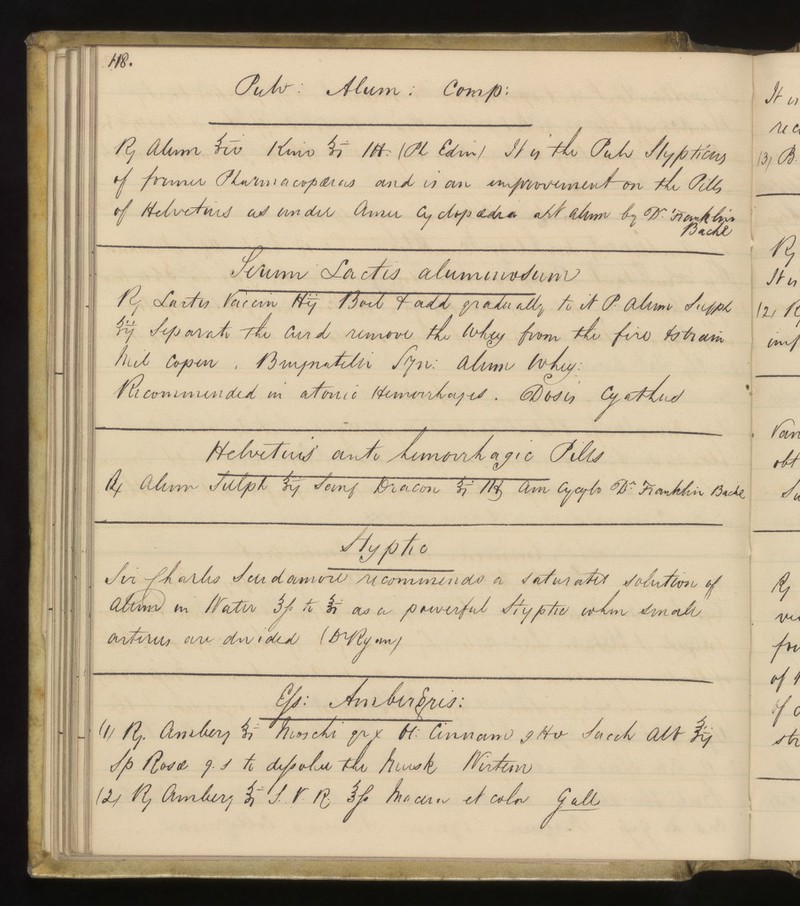 48.
Pulv: Alum: Comp:
℞ Alum ℥iv Kino ℥i M: (Ph Edin) It is the Pulv Stypticus
of former Pharmacopœias and is an improvement on the Pills
of Helvetius as under Amer Cyclopædia art alum by Dr. Franklin
Bache
Serum Lactis aluminosum
℞ Lactis Vaccin ℔ij Boil & add gradually to it P Alum Sulph
ʒij Separate the Curd remove the Whey from the fire & strain
Mel Syn: Alum Whey:
Recommended in atonic Hemorrhages. Dosis Cyathus
Helvetius' anti hemorrhagic Pills
℞ Alum Sulph ʒij Sang Dracon ʒi M Am Cyclo Dr Franklin Bache
Styptic
Sir Charles Scudamore recommends a saturated solution of
Alum in Water to ℥i as a powerful Styptic when small
arteries are divided (Dr Ryan)
Ess: Ambergris:
(1) ℞. Amberg ʒi Moschi gr x Ol: Cinnam Sacch Alb ʒij
Sp Rosæ q.s to dissolve the Musk
(2) ℞ Amberg ʒi S. V. R. Macera et cola Gall
It is
(3) B
℞
It is
(2) ℞
imp
Van
obt
℞
of
str